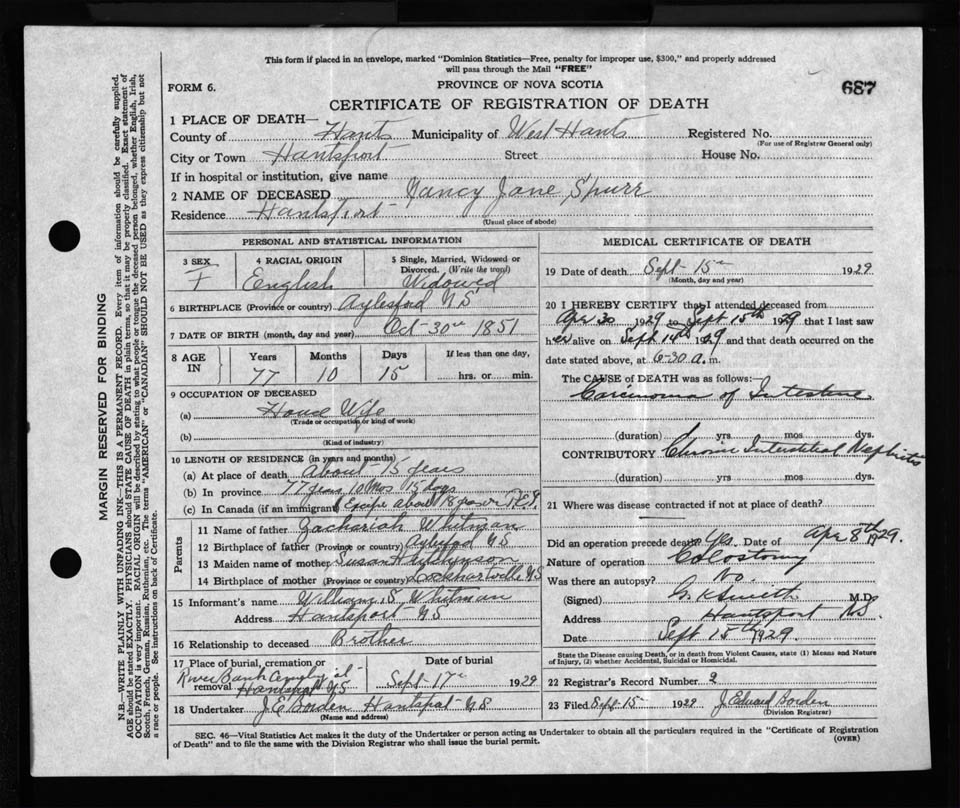 This form if placed in an envelope, marked "Dominion Statistics—Free, penalty for improper use, $300," and properly addressed
will pass through the Mail "FREE"
FORM 6.
PROVINCE OF NOVA SCOTIA
687
CERTIFICATE OF REGISTRATION OF DEATH
1 PLACE OF DEATH—
County of Hants Municipality of West Hants Registered No.
(For use of Registrar General only)
City or Town Hantsport Street House No.
If in hospital or institution, give name
2 NAME OF DECEASED Nancy Jane Spurr
Residence Hantsport
(Usual place of abode)
PERSONAL AND STATISTICAL INFORMATION
3 SEX F
4 RACIAL ORIGIN English
5 Single, Married, Widowed or Divorced. (Write the word) Widowed
6 BIRTHPLACE (Province or country) Aylesford NS
7 DATE OF BIRTH (month, day and year) Oct-30th 1851
8 AGE IN Years Months Days If less than one day,
77 10 15 hrs. or min.
9 OCCUPATION OF DECEASED
(a) House Wife
(Trade or occupation or kind of work)
(b)
(Kind of industry)
10 LENGTH OF RESIDENCE (in years and months)
(a) At place of death About 15 years
(b) In province 77 years 10 Mos 15 days
(c) In Canada (if an immigrant) Except about 18 years in P.E.I.
Parents
11 Name of father Zachariah Whitman
12 Birthplace of father (Province or country) Aylesford NS
13 Maiden name of mother Susan Hutchinson
14 Birthplace of mother (Province or country) Lockhartville NS
15 Informant's name William S Whitman
Address Hantsport NS
16 Relationship to deceased Brother
17 Place of burial, cremation or removal Date of burial
River Bank Cemetery
Hantsport NS Sept 17th 1929
18 Undertaker J.E. Borden Hantsport NS
(Name and address)
MEDICAL CERTIFICATE OF DEATH
19 Date of death Sept-15th 1929
(Month, day and year)
20 I HEREBY CERTIFY that I attended deceased from
Apr 30 1929 to Sept 15th 1929 that I last saw
her alive on Sept 14th 1929 and that death occurred on the
date stated above, at 6-30 a.m.
The CAUSE of DEATH was as follows:
Carcinoma of Intestine
(duration) 1 yrs mos dys.
CONTRIBUTORY Chronic Interstitial Nephritis
(duration) yrs mos dys.
21 Where was disease contracted if not at place of death?
Did an operation precede death? Yes. Date of Apr 8th 1929.
Nature of operation Colostomy
Was there an autopsy? No.
(Signed) Smith M.D.
Address Hantsport NS.
Date Sept 15th 1929.
State the Disease causing Death, or in death from Violent Causes, state (1) Means and Nature
of Injury, (2) whether Accidental, Suicidal or Homicidal.
22 Registrar's Record Number 2
23 Filed Sept-15 1929 J. Edward Borden
(Division Registrar)
SEC. 46—Vital Statistics Act makes it the duty of the Undertaker or person acting as Undertaker to obtain all the particulars required in the "Certificate of Registration
of Death" and to file the same with the Division Registrar who shall issue the burial permit.
(OVER)
MARGIN RESERVED FOR BINDING
N.B.—WRITE PLAINLY WITH UNFADING INK—THIS IS A PERMANENT RECORD. Every item of information should be carefully supplied.
AGE should be stated EXACTLY. PHYSICIANS should STATE CAUSE OF DEATH in plain terms, so that it may be properly classified. Exact statement of
OCCUPATION is very important. RACIAL ORIGIN will be described by stating to what people or tongue the deceased person belonged, whether English, Irish,
Scotch, French, German, Russian, Ruthenian, etc. The terms "AMERICAN" or "CANADIAN" SHOULD NOT BE USED as they express citizenship but not
a race or people. See instructions on back of Certificate.